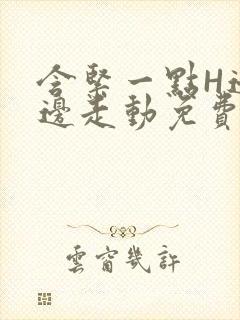 含緊一點H邊
邊走動免費
雲窗幾許